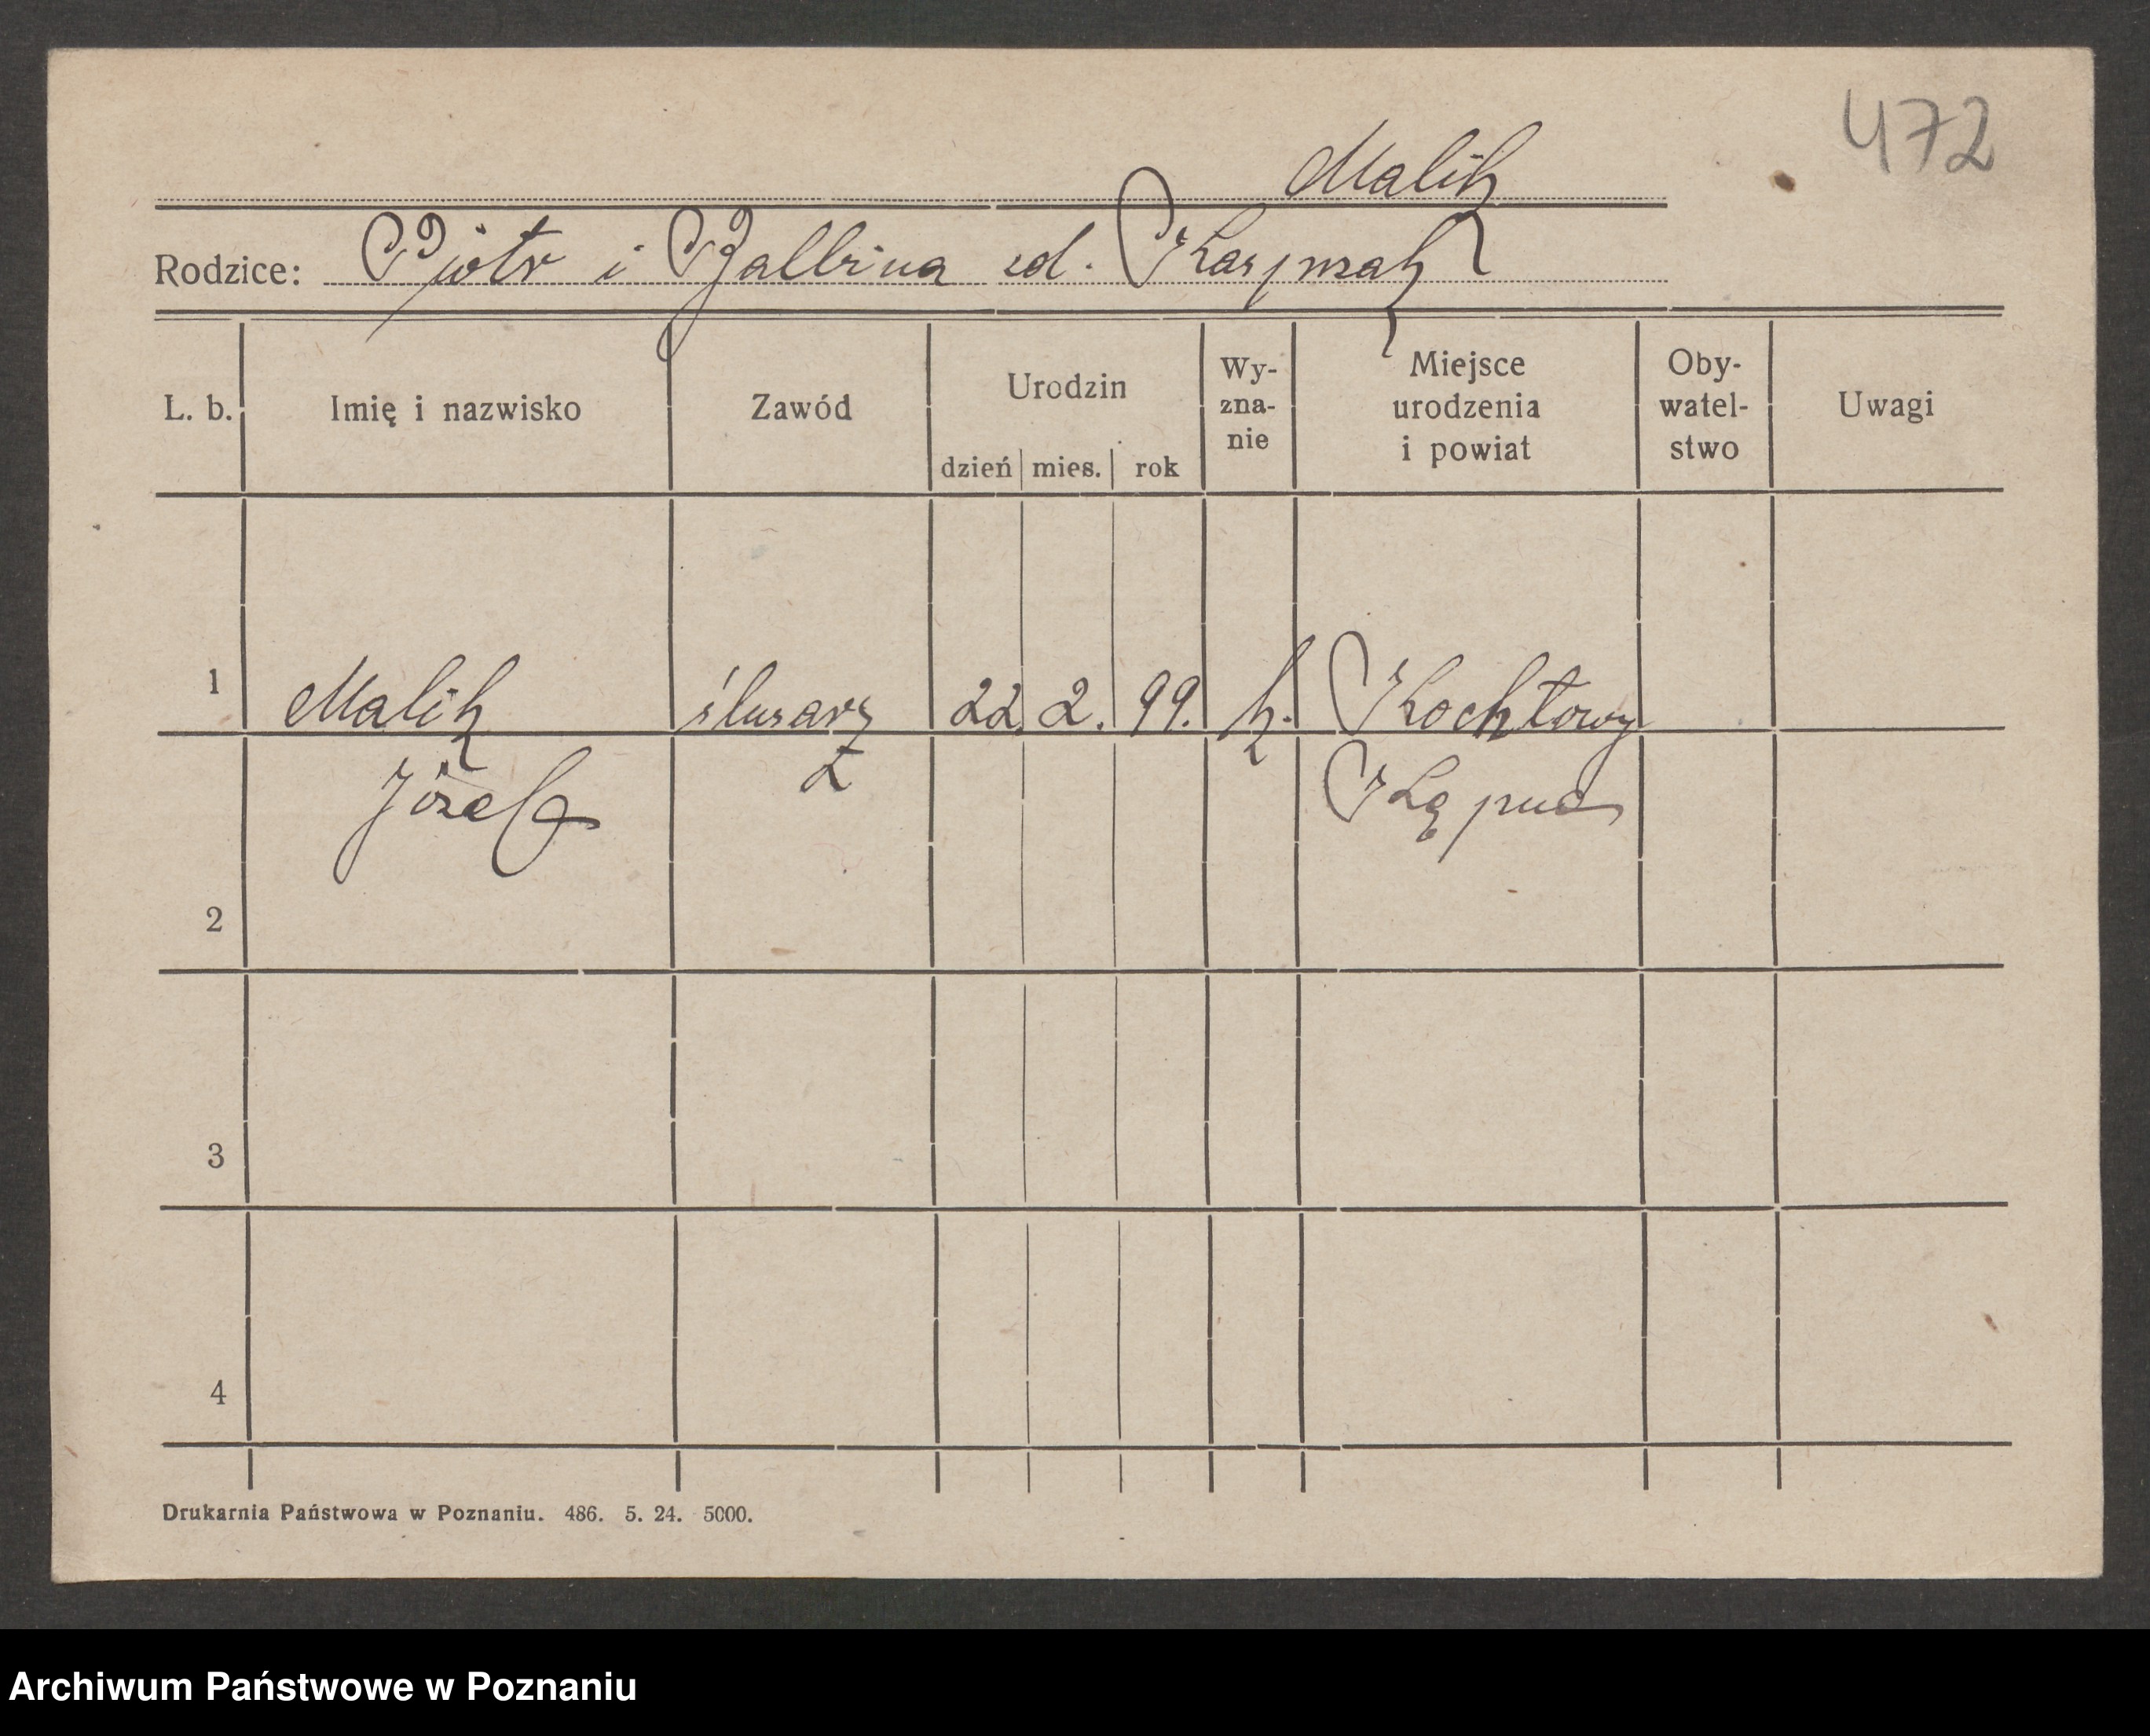 472
Malik
Rodzice: Piotr i Balbina zd. Karpczak
L. b. Imię i nazwisko Zawód Urodzin dzień mies. rok Wy-zna-nie Miejsce urodzenia i powiat Oby-watel-stwo Uwagi
1 Malik ślusarz 22. 2. 99. k. Kochłowy
Józef Kępno
2
3
4
Drukarnia Państwowa w Poznaniu. 486. 5. 24. 5000.
Archiwum Państwowe w Poznaniu